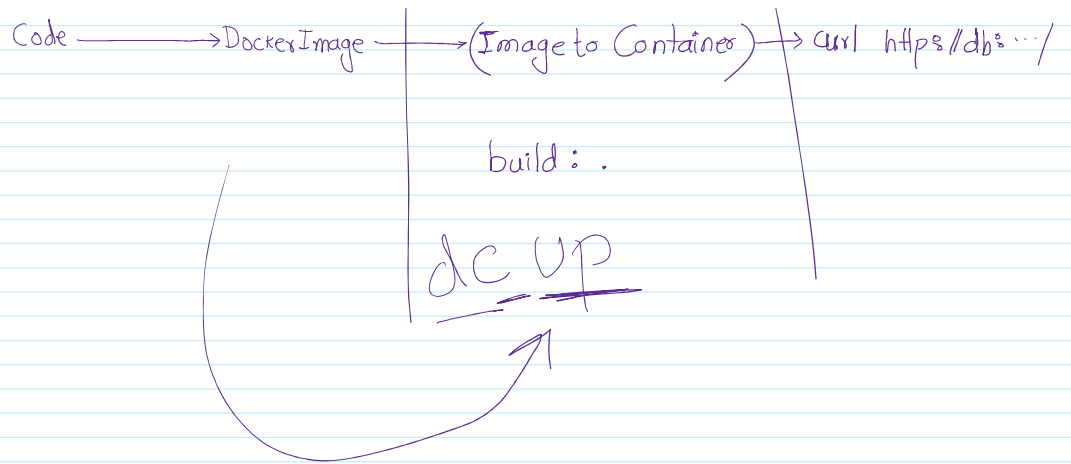 Code → DockerImage → (Image to Container) → curl https://db:.../
build: .
dc up